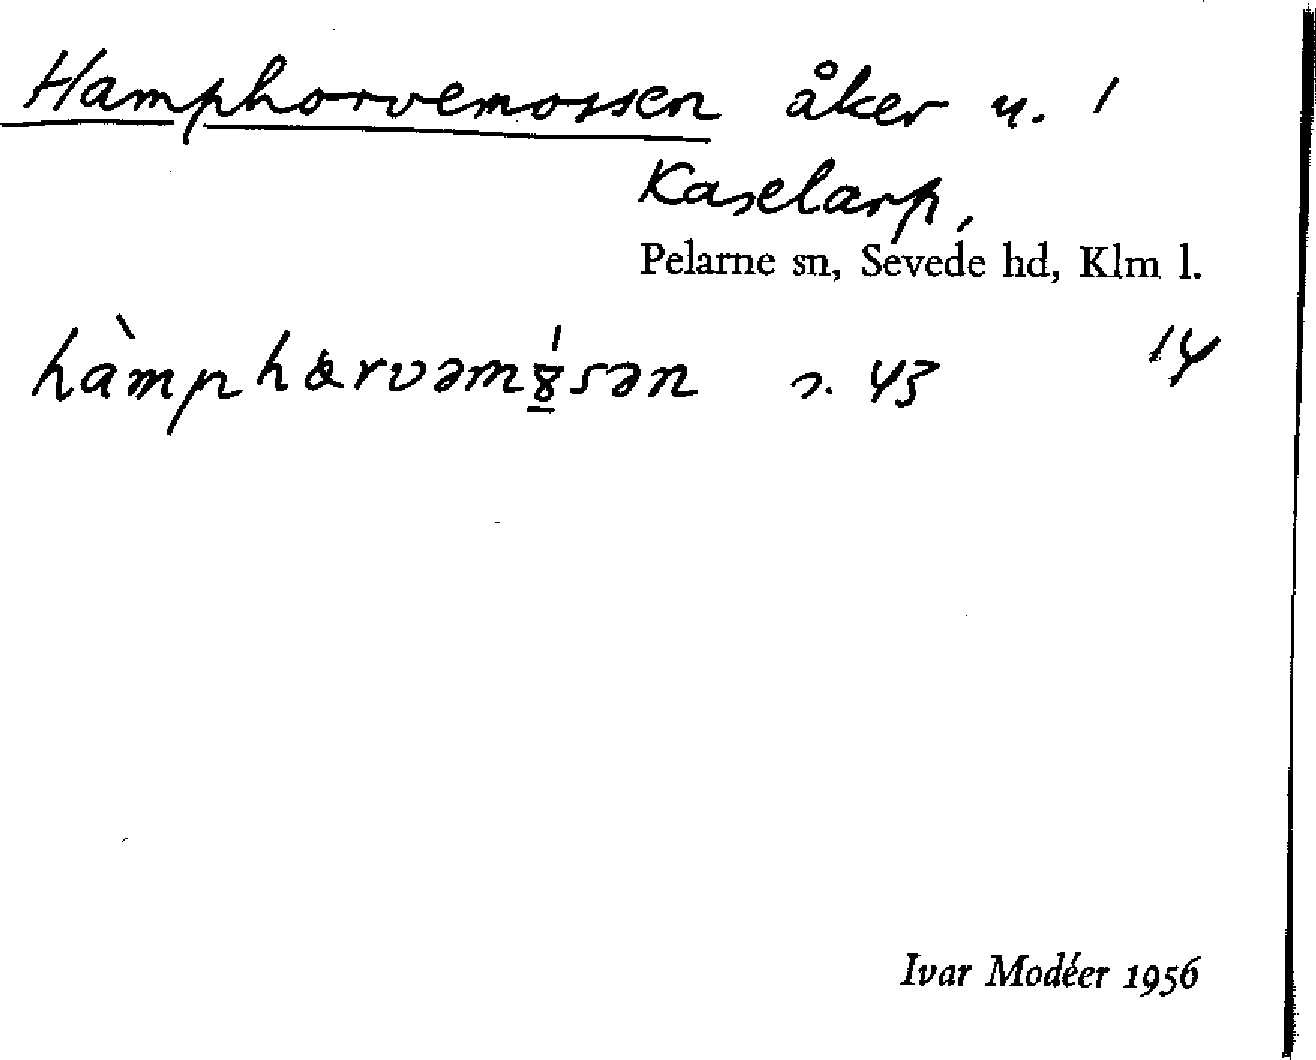 Hamphorvemossen åker u. 1
Kaselarp,
Pelarne sn, Sevede hd, Klm l.
hàmphærvəmo̲sən s. 43 14
Ivar Modéer 1956